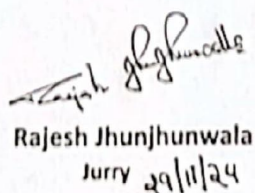 Rajesh Jhunjhunwala
Rajesh Jhunjhunwala
Jurry 29/11/24